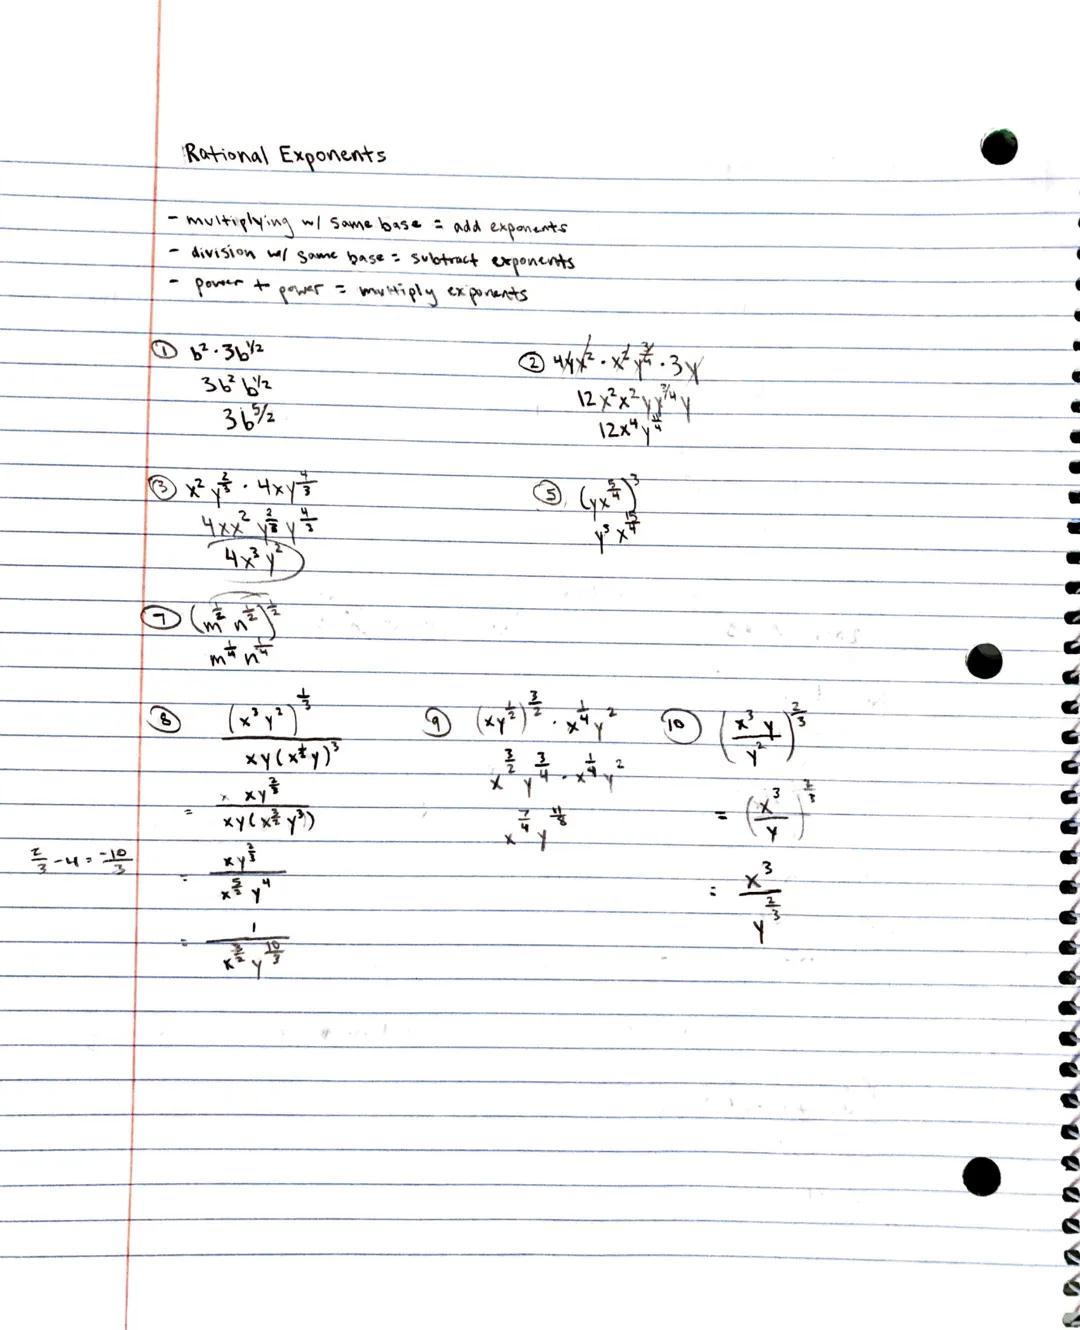 Rational Exponents
- multiplying w/ same base = add exponents
- division w/ same base = subtract exponents
- power to power = multiply exponents
① b² · 3b^(1/2)
3b² b^(1/2)
3b^(5/2)
② 4yx² · x² y^(3/4) · 3y
12x²x²yy^(3/4)y
12x⁴y^(11/4)
③ x² y^(2/3) · 4xy^(4/3)
4xx² y^(2/3) y^(4/3)
4x³y²
⑤ (yx^(5/4))³
y³ x^(15/4)
⑦ (m^(1/2) n^(1/2))^(1/2)
m^(1/4) n^(1/4)
⑧ (x³y²)^(1/3) / xy(x^(1/2)y)³
= xy^(2/3) / xy(x^(3/2) y³)
2/3 - 4 = -10/3
= xy^(2/3) / x^(5/2) y⁴
= 1 / x^(3/2) y^(10/3)
⑨ (xy^(1/2))^(3/2) · x^(1/4) y²
x^(3/2) y^(3/4) · x^(1/4) y²
x^(7/4) y^(11/8)
⑩ (x³y / y²)^(2/3)
= (x³ / y)^(2/3)
= x³ / y^(2/3)